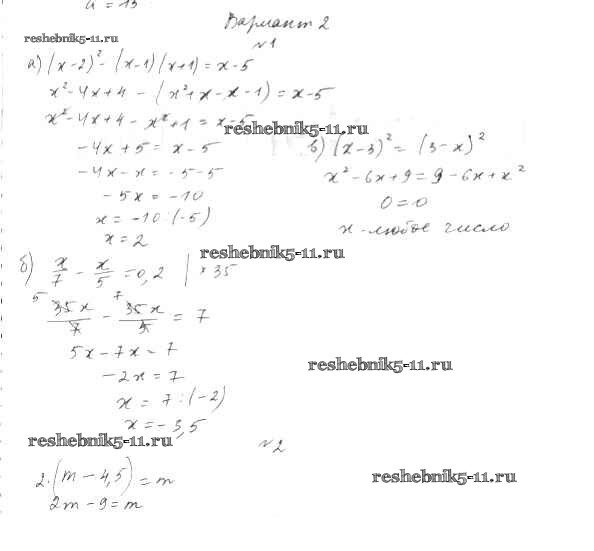 a = 13
Вариант 2
reshebnik5-11.ru
№1
а) (x-2)² - (x-1)(x+1) = x-5
x² - 4x + 4 - (x² + x - x - 1) = x-5
x² - 4x + 4 - x² + 1 = x-5
reshebnik5-11.ru
-4x + 5 = x - 5
-4x - x = -5 - 5
-5x = -10
x = -10 : (-5)
x = 2
в) (x-3)² = (3-x)²
x² - 6x + 9 = 9 - 6x + x²
0 = 0
x - любое число
reshebnik5-11.ru
б) x/7 - x/5 = 0,2 | × 35
5 35x/7 - 7 35x/5 = 7
5x - 7x = 7
-2x = 7
x = 7 : (-2)
x = -3,5
reshebnik5-11.ru
reshebnik5-11.ru
№2
2·(m - 4,5) = m
2m - 9 = m
reshebnik5-11.ru